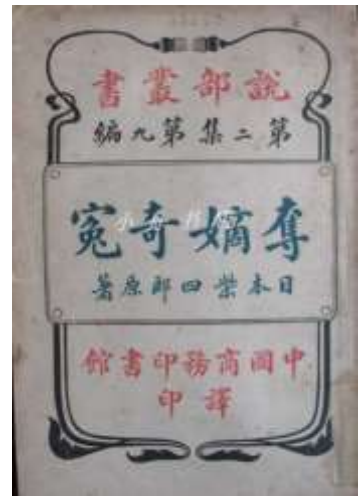 說部叢書
第二集第九編
奪嫡奇冤
日本柴四郎原著
中國商務印書館
譯印